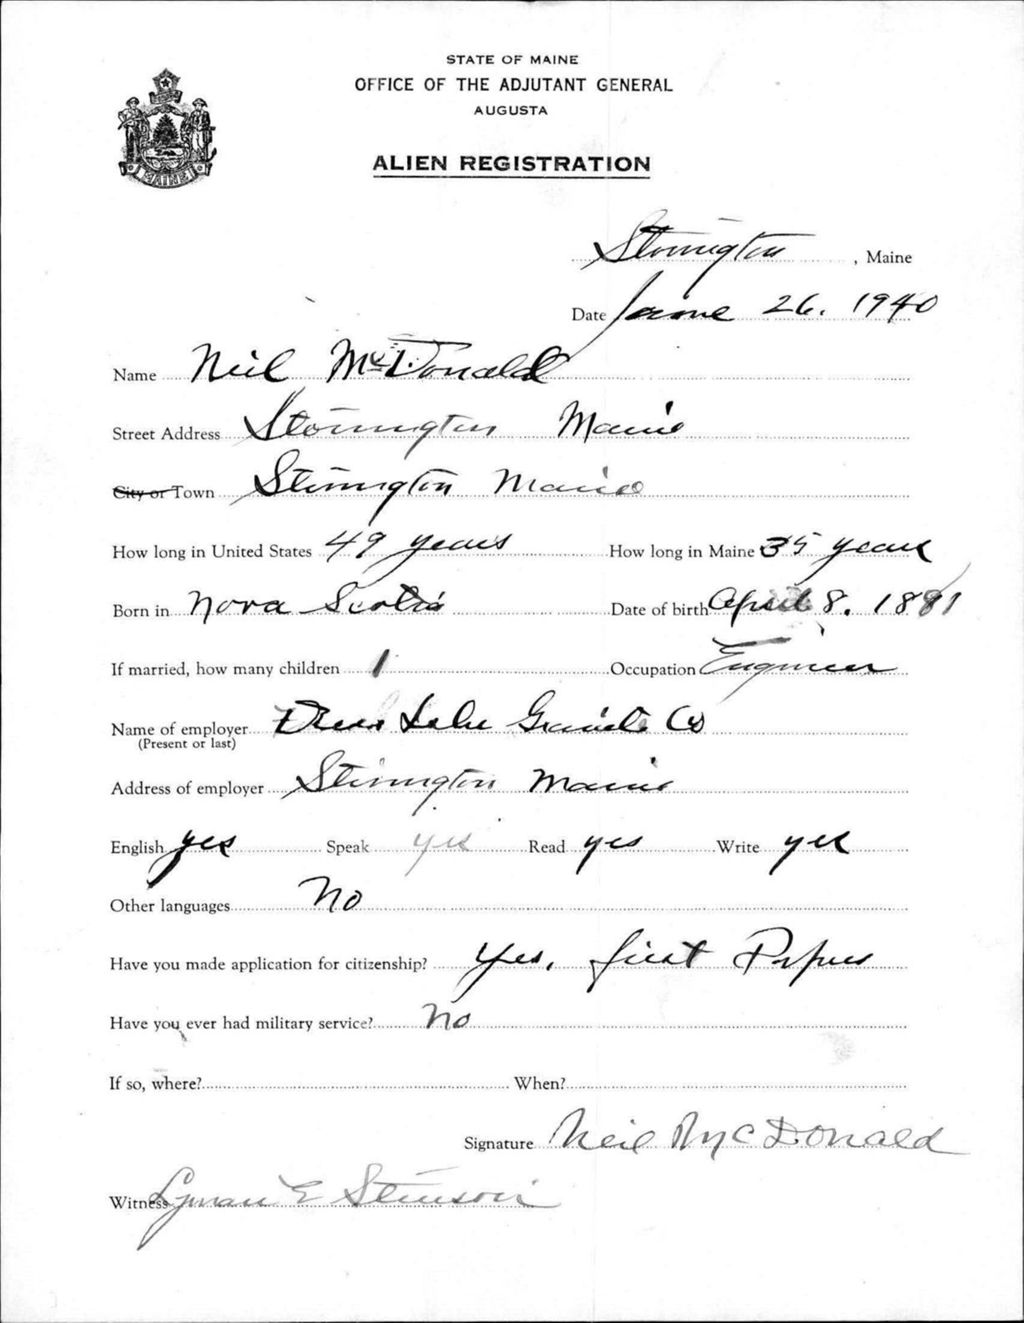 STATE OF MAINE
OFFICE OF THE ADJUTANT GENERAL
AUGUSTA
ALIEN REGISTRATION
MAINE
Stonington, Maine
Date June 26. 1940
Name Neil McDonald
Street Address Stonington Maine
City or Town Stonington Maine
How long in United States 49 years How long in Maine 35 years
Born in Nova Scotia Date of birth April 8. 1881
If married, how many children 1 Occupation Engineer
Name of employer Granite Co
(Present or last)
Address of employer Stonington Maine
English yes Speak yes Read yes Write yes
Other languages No
Have you made application for citizenship? Yes, first Papers
Have you ever had military service? No
If so, where? When?
Signature Neil McDonald
Witness Lyman E Stinson